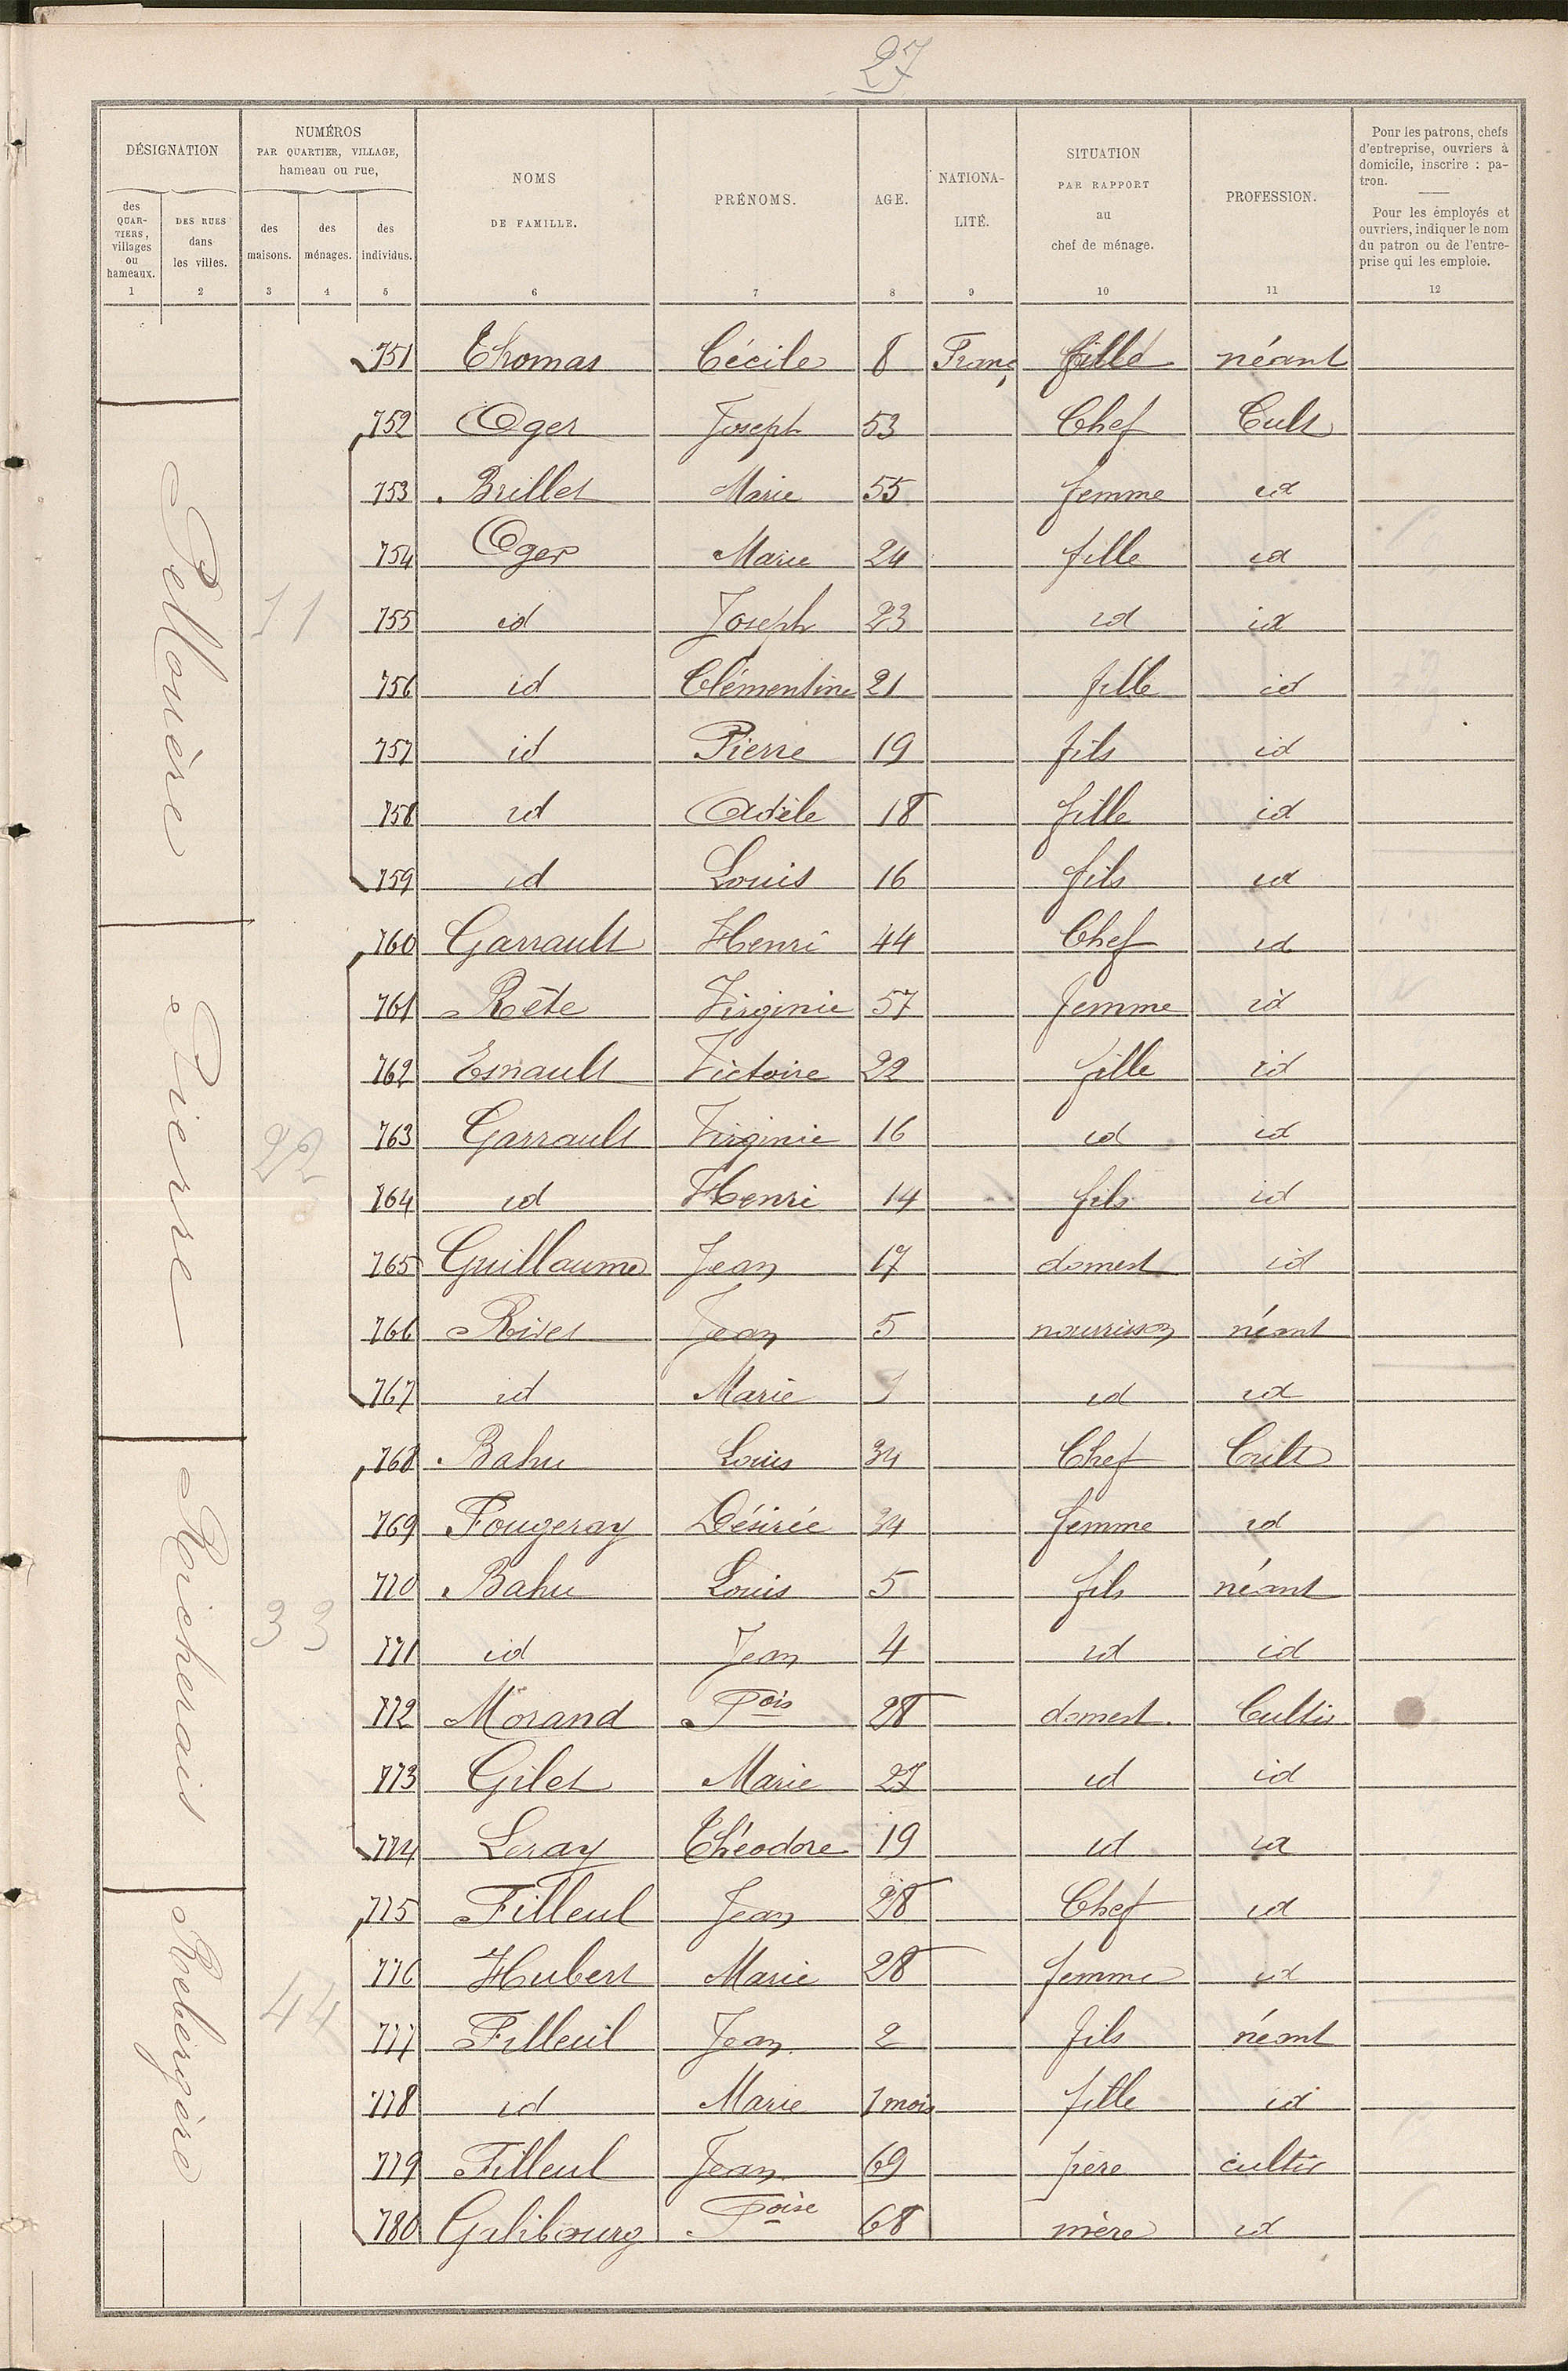 27
DÉSIGNATION
NUMÉROS
PAR QUARTIER, VILLAGE,
hameau ou rue,
des
QUAR-
TIERS,
villages
ou
hameaux.
DES RUES
dans
les villes.
des
maisons.
des
ménages.
des
individus.
NOMS
DE FAMILLE.
PRÉNOMS.
AGE.
NATIONA-
LITÉ.
SITUATION
PAR RAPPORT
au
chef de ménage.
PROFESSION.
Pour les patrons, chefs
d'entreprise, ouvriers à
domicile, inscrire : pa-
tron.
Pour les employés et
ouvriers, indiquer le nom
du patron ou de l'entre-
prise qui les emploie.
1 2 3 4 5 6 7 8 9 10 11 12
751 Thomas Cécile 8 Franç fille néant
Pellonière
1 1
752 Oger Joseph 53 Chef Cult
753 Brillet Marie 55 femme id
754 Oger Marie 24 fille id
755 id Joseph 23 id id
756 id Clémentine 21 fille id
757 id Pierre 19 fils id
758 id Adèle 18 fille id
759 id Louis 16 fils id
Pierre
2 2
760 Garrault Henri 44 Chef id
761 Rête Virginie 57 femme id
762 Esnault Victoire 22 fille id
763 Garrault Virginie 16 id id
764 id Henri 14 fils id
765 Guillaume Jean 17 domest id
766 Rivet Jean 5 nourrisson néant
767 id Marie 1 id id
Roicherais
3 3
768 Bahu Louis 34 Chef Cult
769 Fougeray Désirée 34 femme id
770 Bahu Louis 5 fils néant
771 id Jean 4 id id
772 Morand Fois 28 domest. Cultiv
773 Gilet Marie 27 id id
774 Leray Théodore 19 id id
Rebergère
4 4
775 Filleul Jean 28 Chef id
776 Hubert Marie 28 femme id
777 Filleul Jean 2 fils néant
778 id Marie 1 mois fille id
779 Filleul Jean 69 père cultiv
780 Galibourg Foise 68 mère id